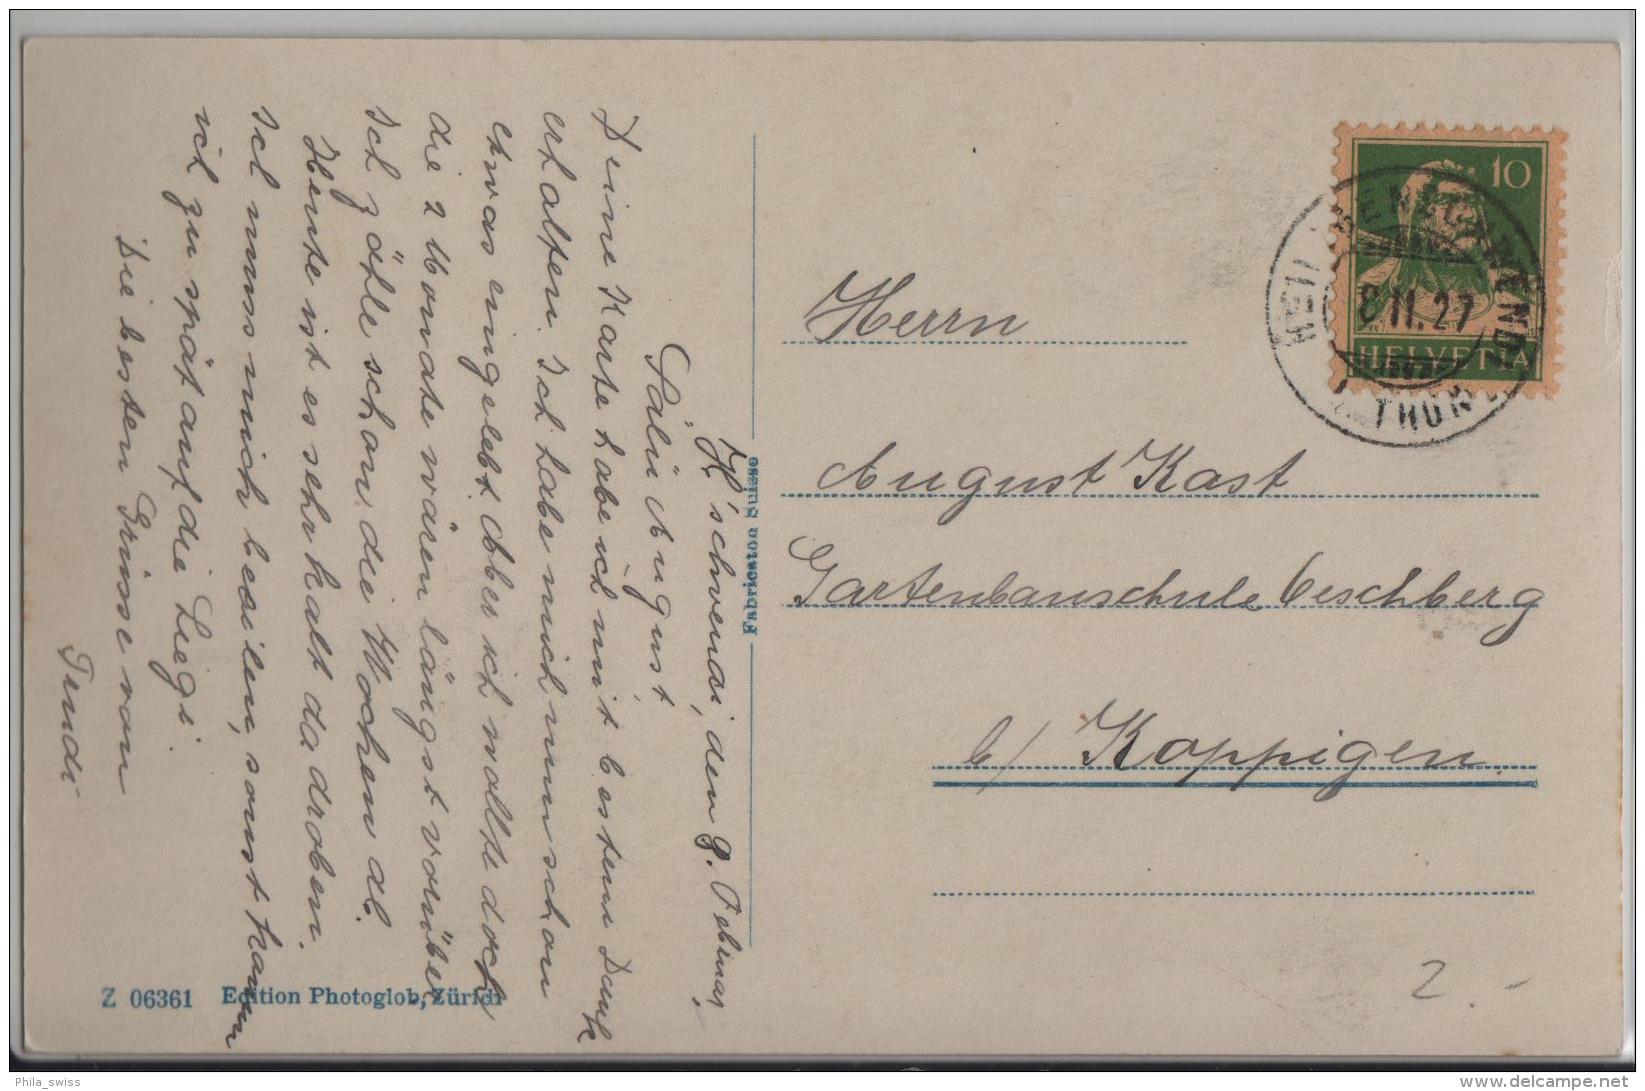 H'schwendi, den 8. Februar,
Sälü August
Deine Karte habe ich mit bestem Dank
erhalten. Ich habe mich nun schon
etwas eingelebt. Aber ich wollte doch
die 2 Monate wären längst vorüber
Ich zähle schon die Wochen ab.
Heute ist es sehr kalt da droben.
Ich muss mich beeilen, sonst komm
ich zu spät auf die Liegi.
Die besten Grüsse von
Trudi
Z 06361 Edition Photoglob, Zürich
Fabrication Suisse
10
HELVETIA
8.II.27
Herrn
August Kast
Gartenbauschule Oeschberg
b/ Koppigen.
2.-
Phila_swiss
delcampe.net